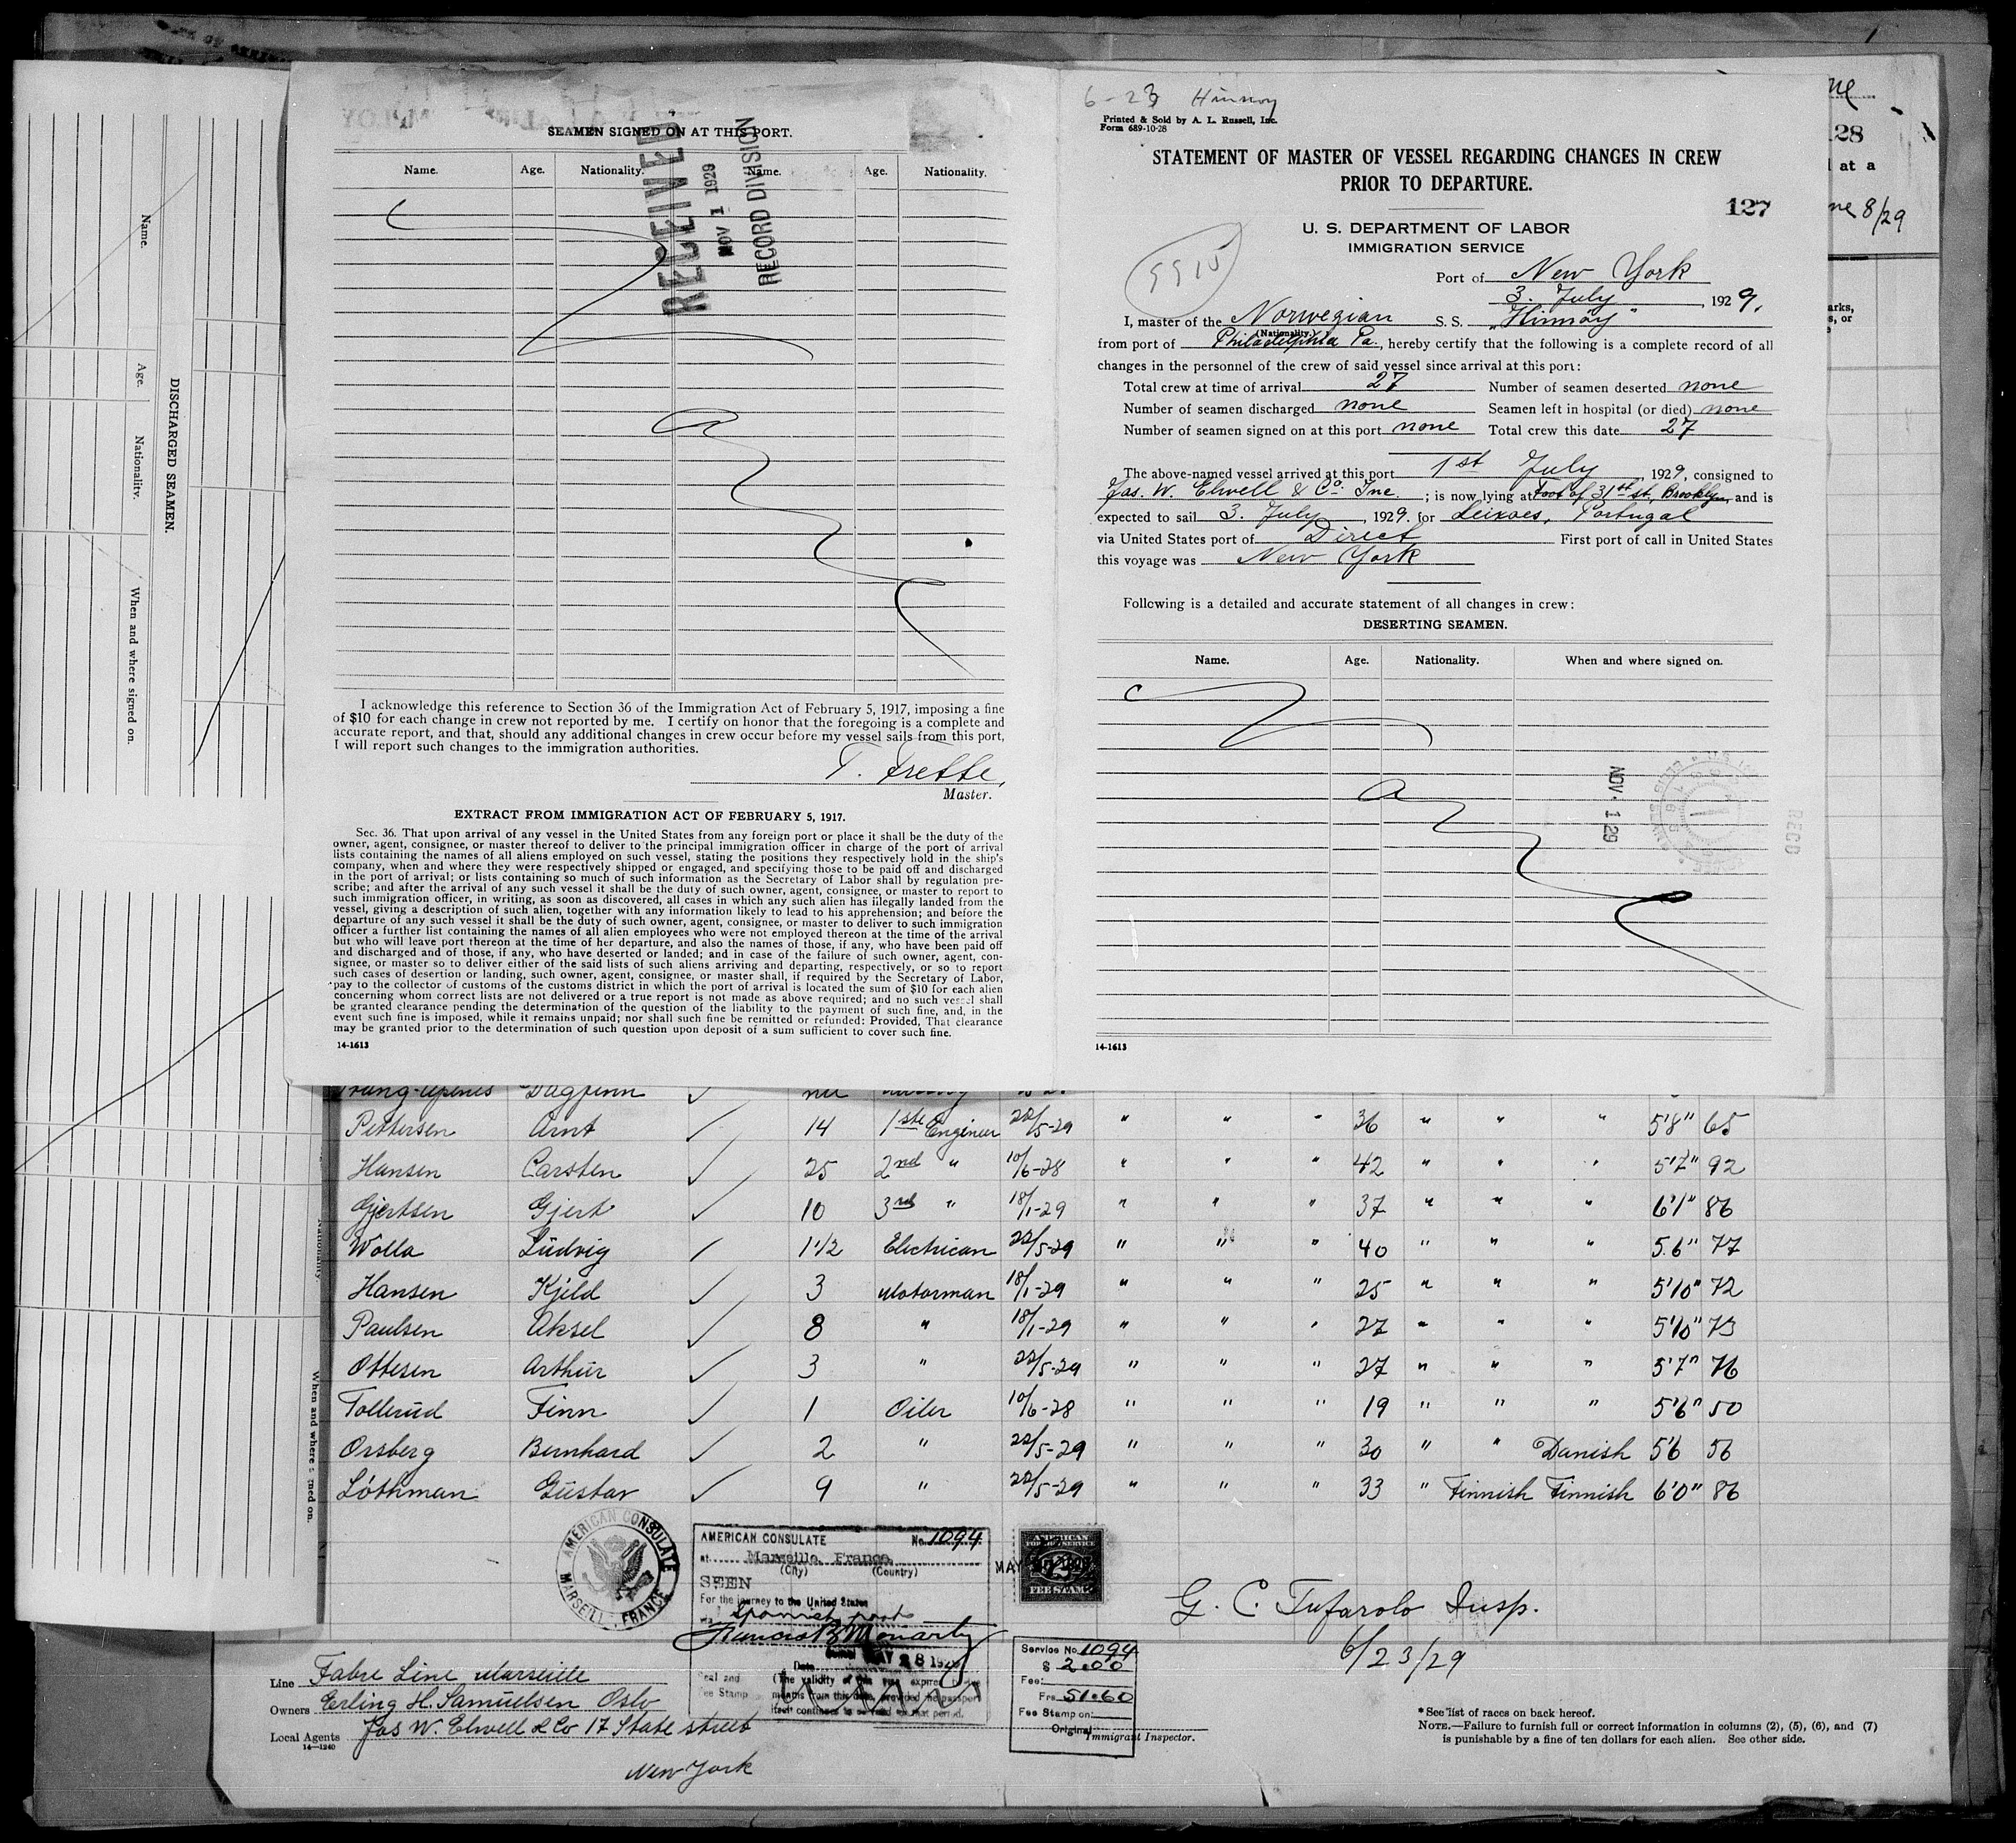 SEAMEN SIGNED ON AT THIS PORT.
Name. Age. Nationality. Name. Age. Nationality.
RECEIVED
NOV 1 1929
RECORD DIVISION
I acknowledge this reference to Section 36 of the Immigration Act of February 5, 1917, imposing a fine
of $10 for each change in crew not reported by me. I certify on honor that the foregoing is a complete and
accurate report, and that, should any additional changes in crew occur before my vessel sails from this port,
I will report such changes to the immigration authorities.
T. Frette,
Master.
EXTRACT FROM IMMIGRATION ACT OF FEBRUARY 5, 1917.
Sec. 36. That upon arrival of any vessel in the United States from any foreign port or place it shall be the duty of the
owner, agent, consignee, or master thereof to deliver to the principal immigration officer in charge of the port of arrival
lists containing the names of all aliens employed on such vessel, stating the positions they respectively hold in the ship's
company, when and where they were respectively shipped or engaged, and specifying those to be paid off and discharged
in the port of arrival; or lists containing so much of such information as the Secretary of Labor shall by regulation pre-
scribe; and after the arrival of any such vessel it shall be the duty of such owner, agent, consignee, or master to report to
such immigration officer, in writing, as soon as discovered, all cases in which any such alien has illegally landed from the
vessel, giving a description of such alien, together with any information likely to lead to his apprehension; and before the
departure of any such vessel it shall be the duty of such owner, agent, consignee, or master to deliver to such immigration
officer a further list containing the names of all alien employees who were not employed thereon at the time of the arrival
but who will leave port thereon at the time of her departure, and also the names of those, if any, who have been paid off
and discharged and of those, if any, who have deserted or landed; and in case of the failure of such owner, agent, con-
signee, or master so to deliver either of the said lists of such aliens arriving and departing, respectively, or so to report
such cases of desertion or landing, such owner, agent, consignee, or master shall, if required by the Secretary of Labor,
pay to the collector of customs of the customs district in which the port of arrival is located the sum of $10 for each alien
concerning whom correct lists are not delivered or a true report is not made as above required; and no such vessel shall
be granted clearance pending the determination of the question of the liability to the payment of such fine, and, in the
event such fine is imposed, while it remains unpaid; nor shall such fine be remitted or refunded: Provided, That clearance
may be granted prior to the determination of such question upon deposit of a sum sufficient to cover such fine.
14-1613
6-23 Hinnoy
Printed & Sold by A. L. Russell, Inc.
Form 689-10-28
STATEMENT OF MASTER OF VESSEL REGARDING CHANGES IN CREW
PRIOR TO DEPARTURE.
127
U. S. DEPARTMENT OF LABOR
IMMIGRATION SERVICE
Port of New York
3. July, 1929.
I, master of the Norwegian S. S. "Hinnöy"
(Nationality.)
from port of Philadelphia Pa., hereby certify that the following is a complete record of all
changes in the personnel of the crew of said vessel since arrival at this port:
Total crew at time of arrival 27 Number of seamen deserted none
Number of seamen discharged none Seamen left in hospital (or died) none
Number of seamen signed on at this port none Total crew this date 27
The above-named vessel arrived at this port 1st July, 1929, consigned to
Jas. W. Elwell & Co. Inc.; is now lying at Foot of 31st st, Brooklyn and is
expected to sail 3. July, 1929. for Leixoes, Portugal
via United States port of Direct First port of call in United States
this voyage was New York
Following is a detailed and accurate statement of all changes in crew:
DESERTING SEAMEN.
Name. Age. Nationality. When and where signed on.
NOV. 1 29
RECD
14-1613
DISCHARGED SEAMEN.
Name. Age. Nationality. When and where signed on.
28
at a
8/29
Dagfinn
Pettersen Arnt 14 1ste Engineer 22/5-29 " " " 36 " " " 5'8" 65
Hansen Carsten 25 2nd " 10/6-28 " " " 42 " " " 5'7" 92
Gjertsen Gjert 10 3rd " 18/1-29 " " " 37 " " " 6'1" 86
Wolla Ludvig 1 1/2 Electrican 22/5-29 " " " 40 " " " 5.6" 77
Hansen Kjeld 3 Motorman 18/1-29 " " " 25 " " " 5'10" 72
Paulsen Aksel 8 " 18/1-29 " " " 27 " " " 5'10" 73
Ottesen Arthur 3 " 22/5-29 " " " 27 " " " 5'7" 76
Tollerud Finn 1 Oiler 10/6-28 " " " 19 " " " 5'6" 50
Orsberg Bernhard 2 " 22/5-29 " " " 30 " " Danish 5'6 56
Löthman Gustav 9 " 22/5-29 " " " 33 " Finnish Finnish 6'0" 86
AMERICAN CONSULATE
MARSEILLE, FRANCE
AMERICAN CONSULATE No. 1094
at Marseille, France.
(City) (Country)
SEEN
For the journey to the United States
via Spanish ports
Date MAY 28 1929
(The validity of this visa expires
months from this date, provided the passport
itself continues to be valid for that period.
Seal and
Fee Stamp
AMERICAN
FOREIGN SERVICE
2
FEE STAMP
Service No. 1094
$ 2.00
Fee:
Frs. 51.60
Fee Stamp on:
Original
G. C. Tufarolo Insp.
6/23/29
Immigrant Inspector.
Line Fabre Line Marseille
Owners Erling H. Samuelsen Oslo
Local Agents Jas W. Elwell & Co 17 State street
14-1240
New York
*See list of races on back hereof.
NOTE.—Failure to furnish full or correct information in columns (2), (5), (6), and (7)
is punishable by a fine of ten dollars for each alien. See other side.